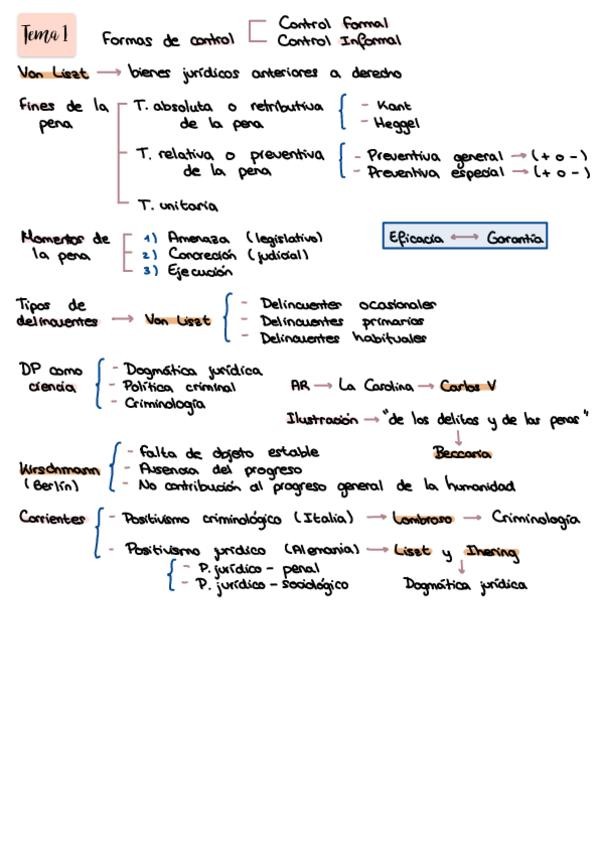 Tema 1
Formas de control
Control Formal
Control Informal
Von Liszt → bienes jurídicos anteriores a derecho
Fines de la pena
T. absoluta o retributiva de la pena
- Kant
- Heggel
T. relativa o preventiva de la pena
- Preventiva general → (+ o -)
- Preventiva especial → (+ o -)
T. unitaria
Momentos de la pena
1) Amenaza (legislativo)
2) Concreción (judicial)
3) Ejecución
Eficacia ↔ Garantía
Tipos de delincuentes → Von Liszt
- Delincuentes ocasionales
- Delincuentes primarios
- Delincuentes habituales
DP como ciencia
- Dogmática jurídica
- Política criminal
- Criminología
AR → La Carolina → Carlos V
Ilustración → "de los delitos y de las penas"
↓
Beccaria
Kirschmann (Berlín)
- Falta de objeto estable
- Ausencia del progreso
- No contribución al progreso general de la humanidad
Corrientes
- Positivismo criminológico (Italia) → Lombroso → Criminología
- Positivismo jurídico (Alemania) → Liszt y Ihering
- P. jurídico - penal
- P. jurídico - sociológico
↓
Dogmática jurídica